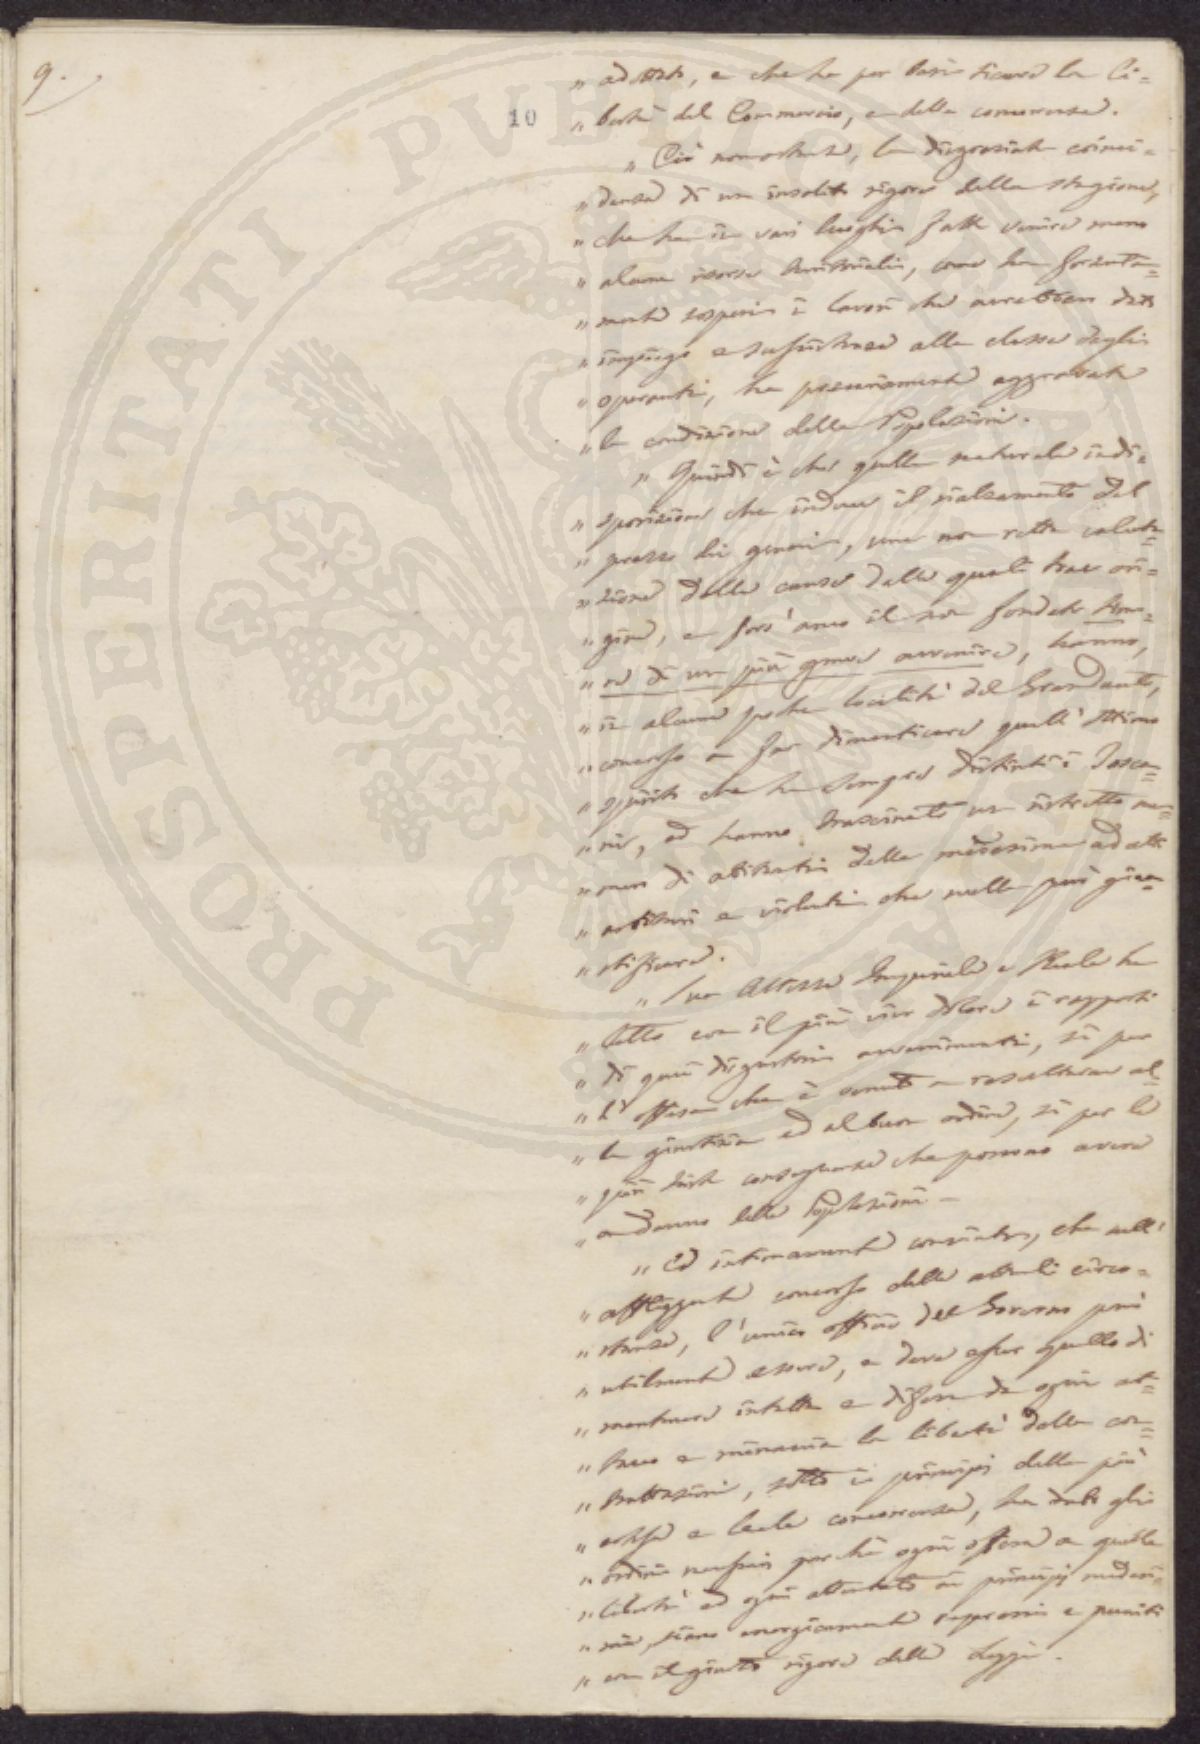 9.
10
" adottato, e che ha per base sicura la li=
" bertà del Commercio, e della concorrenza.
" Ciò nonostante, la disgraziata coinci=
" denza di un insolito rigore della stagione,
" che ha in vari luoghi fatte venire meno
" alcune risorse territoriali, come ha forzata=
" mente sospesi i lavori che avrebbero dato
" impiego e sussistenza alla classe degli
" operanti, ha precariamente aggravata
" la condizione delle Popolazioni.
" Quindi è che quella naturale indi=
" sposizione che induce il rialzamento del
" prezzo dei generi, una non retta valuta=
" zione delle cause dalle quali trae ori=
" gine, e fors'anco il non fondato timo=
" re di un più grave avvenire, hanno,
" in alcune poche località del GranDucato,
" concorso a far dimenticare quell'ottimo
" spirito che ha sempre distinti i Tosca=
" ni, ed hanno trascinato un ristretto nu=
" mero di abitanti delle medesime ad atti
" arbitrari e violenti che nulla può giu=
" stificare.
" Sua Altezza Imperiale e Reale ha
" letto con il più vivo dolore i rapporti
" di quei disgustosi avvenimenti, sì per
" l'offesa che è venuta a resultarne al=
" la giustizia ed al buon ordine, sì per le
" più triste conseguenze che possono avere
" a danno delle Popolazioni —
" Ed intimamente convinto, che nell'
" affliggente concorso delle attuali circo=
" stanze, l'unico officio del Governo può
" utilmente essere, e deve esser quello di
" mantenere intatta e difesa da ogni at=
" tacco e minaccia la libertà delle con=
" trattazioni, sotto i principj della più
" estesa e leale concorrenza, ha dato gli
" ordini necessari perchè ogni offesa a quella
" libertà ed ogni attentato ai principj medesi=
" mi, siano energicamente repressi e puniti
" con il giusto rigore delle Leggi.
PROSPERITATI PVBLICAE